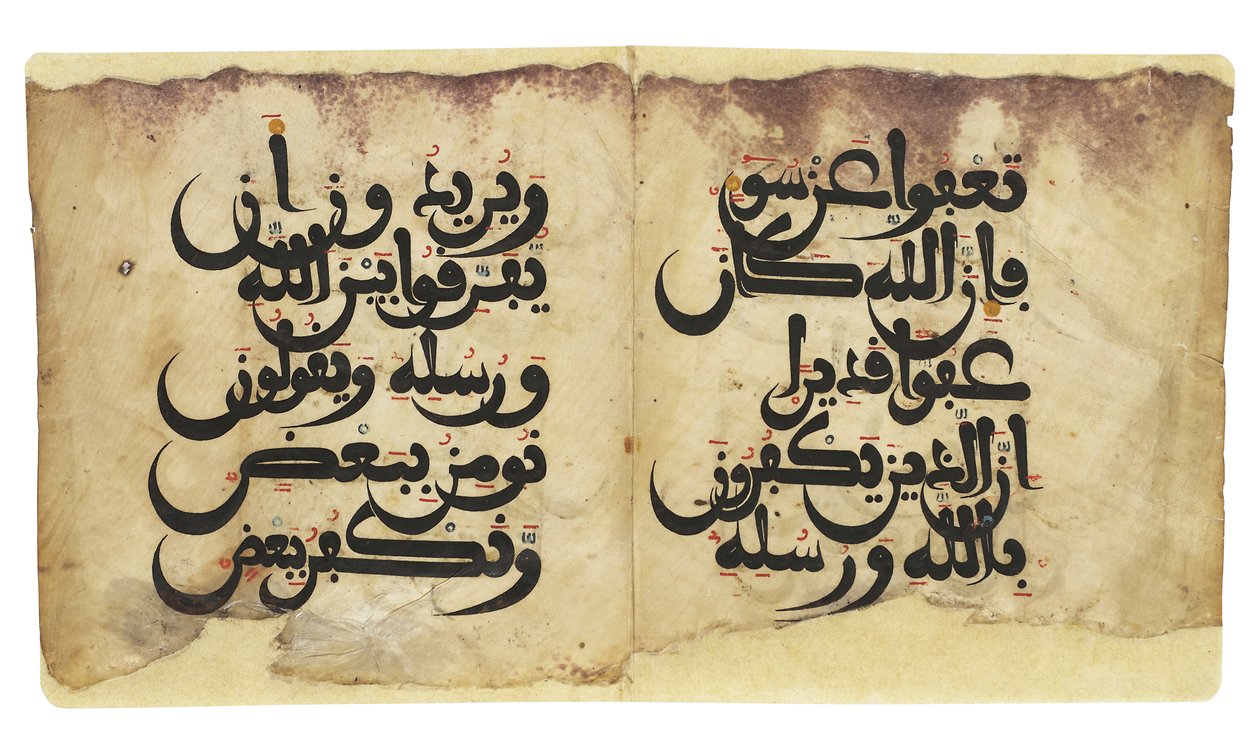 تَعْفُوا۟ عَن سُوٓءٍ
فَإِنَّ اَ۬للَّهَ كَانَ
عَفُوّاٗ قَدِيراً
اِنَّ اَ۬لذِينَ يَكْفُرُونَ
بِاللَّهِ وَرُسُلِهِ
وَيُرِيدُونَ أَنْ
يُّفَرِّقُوا۟ بَيْنَ اَ۬للَّهِ
وَرُسُلِهِ وَيَقُولُونَ
نُومِنُ بِبَعْضٍ
وَّنَكْفُرُ بِبَعْضٍ